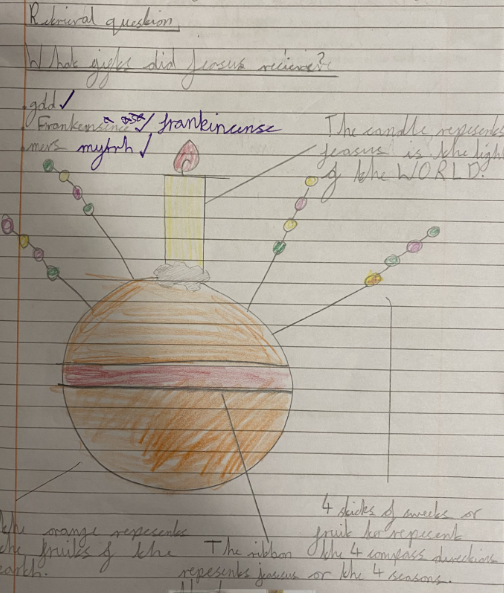 Retrieval question
What gifts did Jeasus recieve?
gold ✓
Frankensince ✓ frankincense
mers myrrh ✓
The candle repesents
jeasus is the light
of the WORLD.
4 sticks of sweets or
fruit to repesent
the 4 compass directions
or the 4 seasons.
The orange repesents
the fruits of the
earth.
The ribbon
repesents jeasus